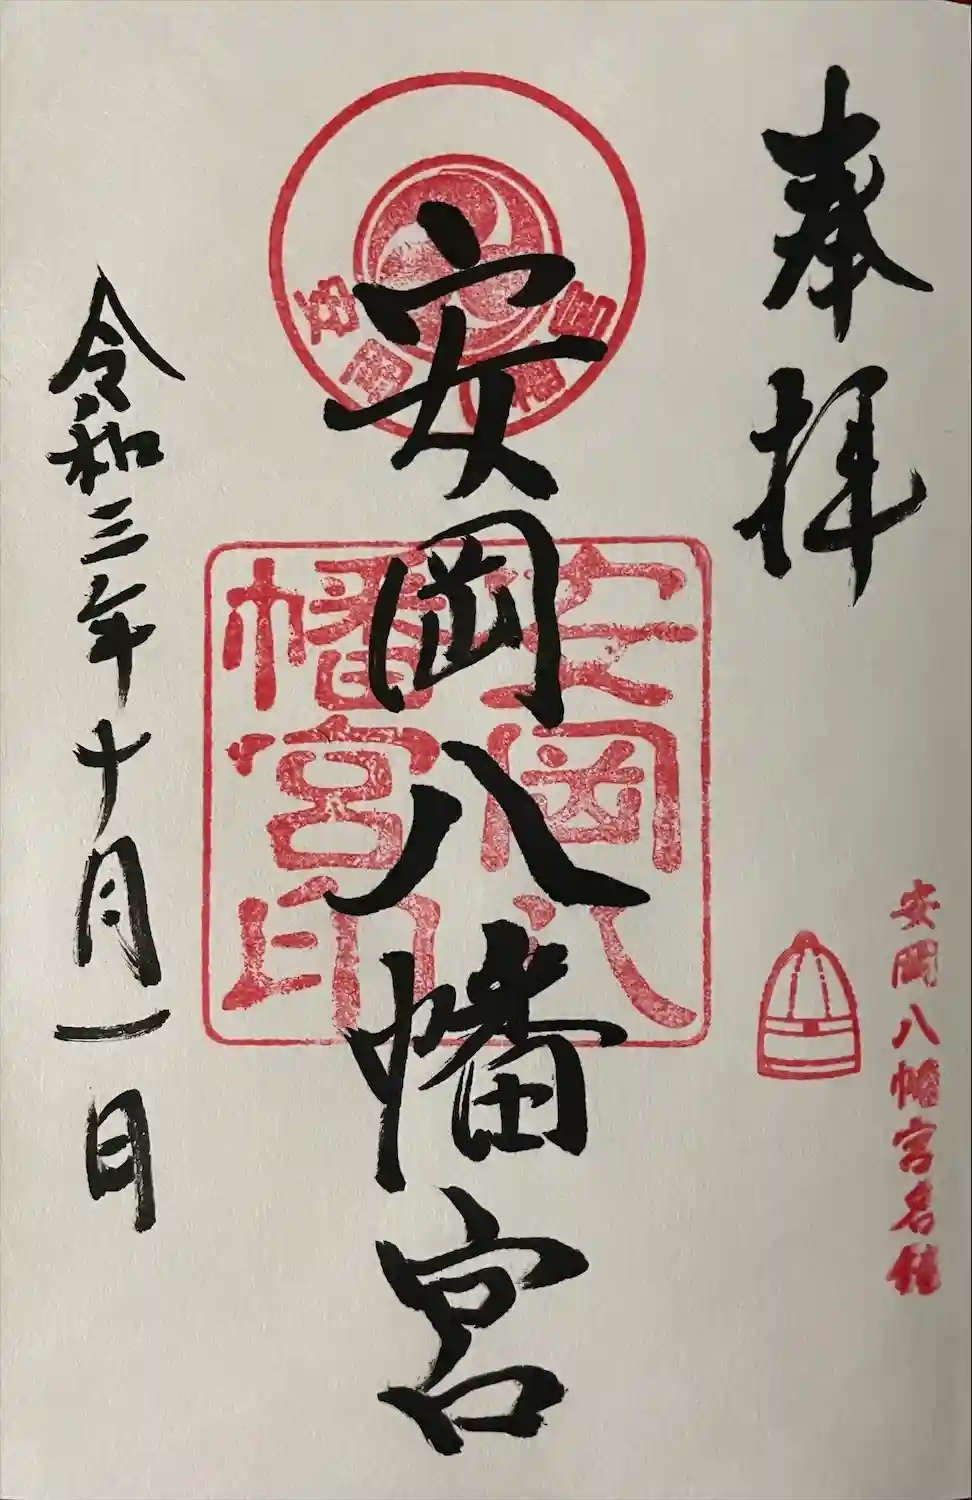 奉拝
安岡八幡宮名鐘
安岡八幡宮
安岡八幡宮
安岡八幡宮印
令和三年十月一日